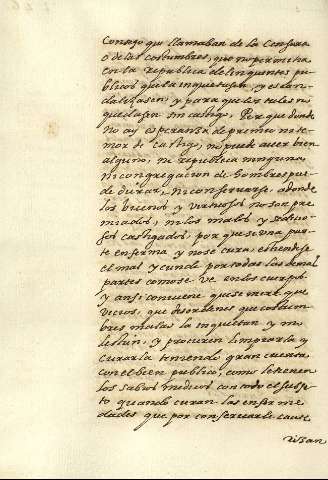 Consejo que llamaban de la Censura
o de las costumbres, que no permitia
en la republica delinquentes pu
blicos que la inquietasen, y escan
dalizasen, y para que los tales no
quedasen sin castigo. Porque donde
no ay esperança de premio ni te
mor de castigo, no puede auer bien
alguno, ni republica ninguna
ni congregacion de hombres pue
de durar, ni conseruarse, a donde
los buenos y virtuosos no son pre
miados, ni los malos y
castigados, porque si una par
te enferma y no se cura, estiendese
el mal, y cunde por todas las demas
partes como se ve en los cuerpos
y ansi conuiene que se mire que
vicios, que desordenes que costum
bres malas la inquietan y mo
lestan, y procuren limpiarla y
curarla teniendo gran cuenta
con el bien publico, como le tienen
los sabios medicos con todo el
quando curan las enferme
dades que por conseruarle caute
rizan